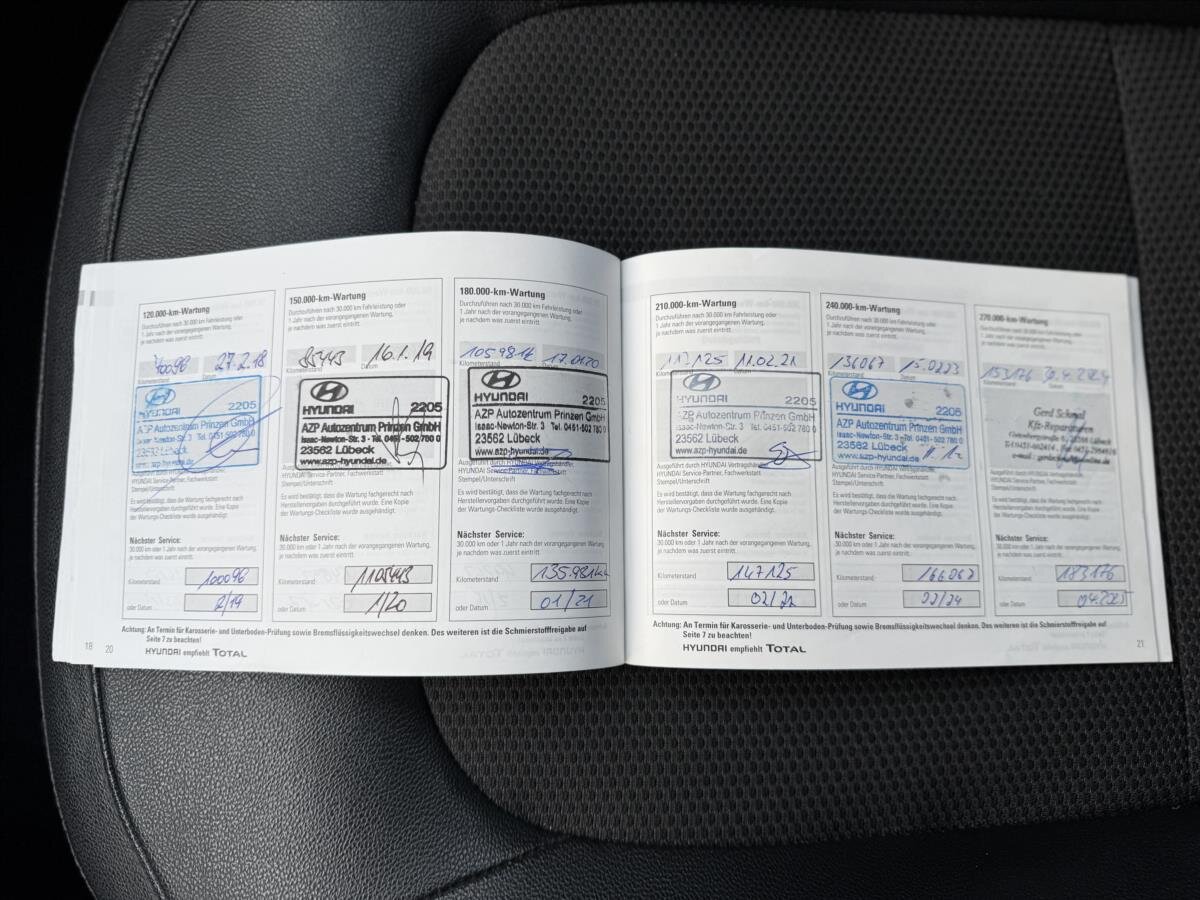 120.000-km-Wartung
Durchzuführen nach 30.000 km Fahrleistung oder
1 Jahr nach der vorangegangenen Wartung,
je nachdem was zuerst eintritt.
27.2.18
Kilometerstand Datum
HYUNDAI 2205
AZP Autozentrum Prinzen GmbH
Isaac-Newton-Str. 3 Tel. 0451-502 780 0
23562 Lübeck
www.azp-hyundai.de
HYUNDAI Service-Partner, Fachwerkstatt
Stempel/Unterschrift
Es wird bestätigt, dass die Wartung fachgerecht nach
Herstellervorgaben durchgeführt wurde. Eine Kopie
der Wartungs-Checkliste wurde ausgehändigt.
Nächster Service:
30.000 km oder 1 Jahr nach der vorangegangenen Wartung,
je nachdem was zuerst eintritt.
Kilometerstand 100096
oder Datum 2/19
150.000-km-Wartung
Durchzuführen nach 30.000 km Fahrleistung oder
1 Jahr nach der vorangegangenen Wartung,
je nachdem was zuerst eintritt.
85443 16.1.19
Datum
HYUNDAI 2205
AZP Autozentrum Prinzen GmbH
Isaac-Newton-Str. 3 · Tel. 0451-502 780 0
23562 Lübeck
www.azp-hyundai.de
HYUNDAI Service-Partner, Fachwerkstatt
Stempel/Unterschrift
Es wird bestätigt, dass die Wartung fachgerecht nach
Herstellervorgaben durchgeführt wurde. Eine Kopie
der Wartungs-Checkliste wurde ausgehändigt.
Nächster Service:
30.000 km oder 1 Jahr nach der vorangegangenen Wartung,
je nachdem was zuerst eintritt.
Kilometerstand 1105443
oder Datum 1/20
180.000-km-Wartung
Durchzuführen nach 30.000 km Fahrleistung oder
1 Jahr nach der vorangegangenen Wartung,
je nachdem was zuerst eintritt.
105981k 17.01.20
HYUNDAI 2205
AZP Autozentrum Prinzen GmbH
Isaac-Newton-Str. 3 Tel. 0451-502 780 0
23562 Lübeck
www.azp-hyundai.de
HYUNDAI Service-Partner, Fachwerkstatt
Stempel/Unterschrift
Es wird bestätigt, dass die Wartung fachgerecht nach
Herstellervorgaben durchgeführt wurde. Eine Kopie
der Wartungs-Checkliste wurde ausgehändigt.
Nächster Service:
30.000 km oder 1 Jahr nach der vorangegangenen Wartung,
je nachdem was zuerst eintritt.
Kilometerstand 135.981km
oder Datum 01/21
Achtung: An Termin für Karosserie- und Unterboden-Prüfung sowie Bremsflüssigkeitswechsel denken. Des weiteren ist die Schmierstofffreigabe auf
Seite 7 zu beachten!
18 20 HYUNDAI empfiehlt TOTAL
210.000-km-Wartung
Durchzuführen nach 30.000 km Fahrleistung oder
1 Jahr nach der vorangegangenen Wartung,
je nachdem was zuerst eintritt.
117125 11.02.21
Kilometerstand Datum
HYUNDAI 2205
AZP Autozentrum Prinzen GmbH
Isaac-Newton-Str. 3 Tel. 0451-502 780 0
23562 Lübeck
www.azp-hyundai.de
Ausgeführt durch HYUNDAI Vertragshändler,
HYUNDAI Service-Partner, Fachwerkstatt
Stempel/Unterschrift
Es wird bestätigt, dass die Wartung fachgerecht nach
Herstellervorgaben durchgeführt wurde. Eine Kopie
der Wartungs-Checkliste wurde ausgehändigt.
Nächster Service:
30.000 km oder 1 Jahr nach der vorangegangenen Wartung,
je nachdem was zuerst eintritt.
Kilometerstand 147125
oder Datum 02/22
240.000-km-Wartung
Durchzuführen nach 30.000 km Fahrleistung oder
1 Jahr nach der vorangegangenen Wartung,
je nachdem was zuerst eintritt.
136067 15.0223
Kilometerstand Datum
HYUNDAI 2205
AZP Autozentrum Prinzen GmbH
Isaac-Newton-Str. 3 Tel. 0451-502 780 0
23562 Lübeck
www.azp-hyundai.de
Ausgeführt durch HYUNDAI Vertragshändler,
HYUNDAI Service-Partner, Fachwerkstatt
Stempel/Unterschrift
Es wird bestätigt, dass die Wartung fachgerecht nach
Herstellervorgaben durchgeführt wurde. Eine Kopie
der Wartungs-Checkliste wurde ausgehändigt.
Nächster Service:
30.000 km oder 1 Jahr nach der vorangegangenen Wartung,
je nachdem was zuerst eintritt.
Kilometerstand 166067
oder Datum 02/24
270.000-km-Wartung
Durchzuführen nach 30.000 km Fahrleistung oder
1 Jahr nach der vorangegangenen Wartung,
je nachdem was zuerst eintritt.
153176 30.4.2024
Gerd Schmal
Kfz-Reparaturen
HYUNDAI Service-Partner, Fachwerkstatt
Stempel/Unterschrift
Es wird bestätigt, dass die Wartung fachgerecht nach
Herstellervorgaben durchgeführt wurde. Eine Kopie
der Wartungs-Checkliste wurde ausgehändigt.
Nächster Service:
30.000 km oder 1 Jahr nach der vorangegangenen Wartung,
je nachdem was zuerst eintritt.
Kilometerstand 183176
oder Datum 04.2025
Achtung: An Termin für Karosserie- und Unterboden-Prüfung sowie Bremsflüssigkeitswechsel denken. Des weiteren ist die Schmierstofffreigabe auf
Seite 7 zu beachten!
HYUNDAI empfiehlt TOTAL 21